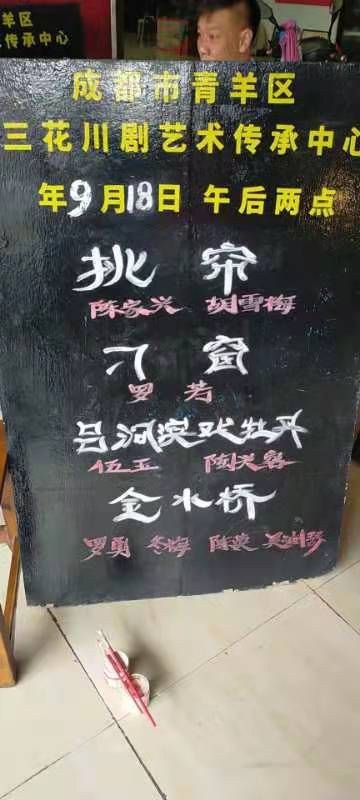 羊区
传承中心
成都市青羊区
三花川剧艺术传承中心
年9月18日 午后两点
挑 帘
陈家兴 胡雪梅
刁 窗
罗 芳
吕洞滨戏牡丹
伍玉
金水桥
罗勇 冬梅